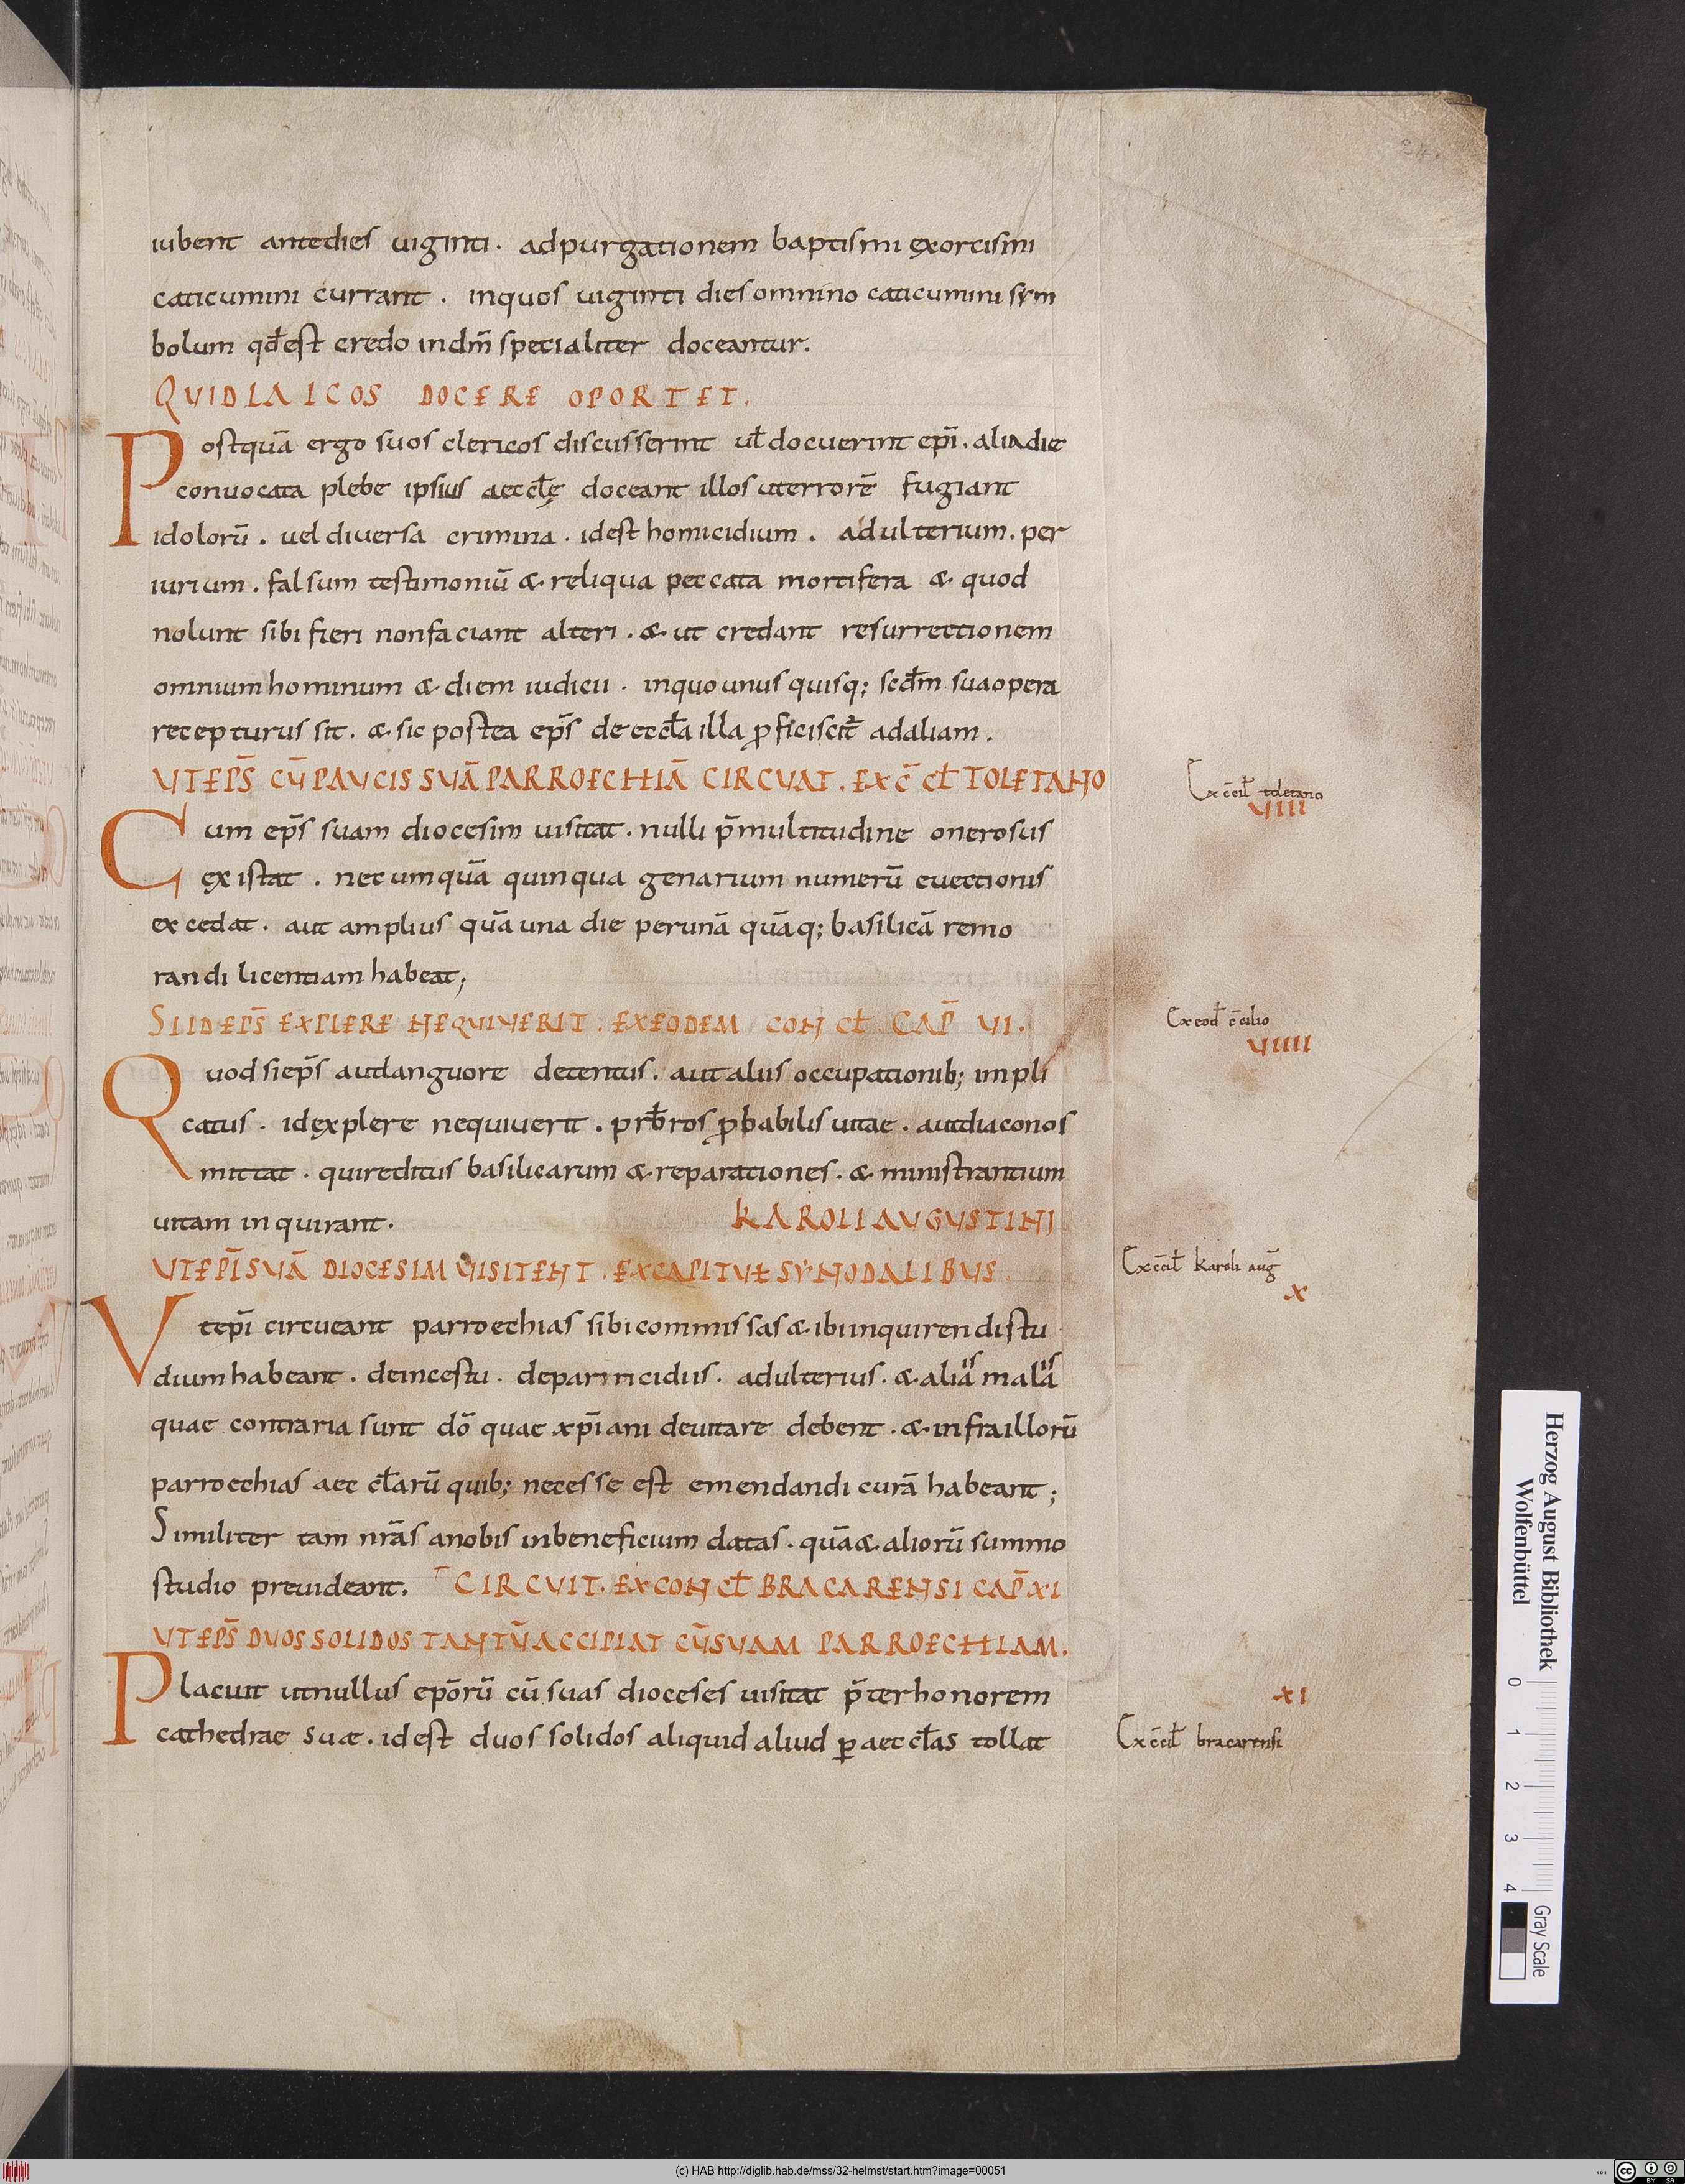 24.
iubent antedies uiginti. adpurgationem baptismi ęxorcismi
caticumini currant. inquos uiginti dies omnino caticumini sym
bolum qđest credo indm̄ specialiter doceantur.
QUID LAICOS DOCERE OPORTET.
Postquā ergo suos clericos discusserint uł docuerint ep̄i. aliadie
conuocata plebe ipsius aeccłę doceant illos uterrorē fugiant
idolorū. uel diuersa crimina. idest homicidium. adulterium. per
iurium. falsum testimoniū & reliqua peccata mortifera & quod
nolunt sibi fieri nonfaciant alteri. & ut credant resurrectionem
omnium hominum & diem iudicii. inquo unus quisq; scđm sua opera
recepturus sit. & sic postea ep̄s de eccła illa ꝓficiscit̄ adaliam.
UTEP̄S CŪ PAUCIS SUĀ PARROECHIĀ CIRCUAT. EX C̄ CŁ TOLETANO
Ex c̄cił toletano
VIII
Cum ep̄s suam diocesim uisitat. nulli p̄multitudine onerosus
ęxistat. necumquā quinquagenarium numerū euectionis
excedat. aut amplius quā una die perunā quāq; basilicā remo
randi licentiam habeat;
SI ID EP̄S EXPLERE NEQUIVERIT. EX EODEM CONCŁ. CAP̄ VI.
Ex eod c̄cilio
VIIII
Quod siep̄s autlanguore detentus. aut aliis occupationib; impli
catus. id ęxplere nequiuerit. prƀros ꝓbabilis uitae. autdiaconos
mittat. quireditus basilicarum & reparationes. & ministrantium
uitam inquirant. KAROLI AUGUSTINI
UTEP̄I SUĀ DIOCESIM VISITENT. EX CAPITUŁ SYNODALIBUS.
Ex c̄cił karoli auḡ
X
Vtep̄i circueant parroechias sibi commissas & ibi inquirendi stu
dium habeant. deincestu. deparricidiis. adulteriis. & alia\is/ mala\is/
quae contraria sunt dō quae xp̄iani deuitare debent. & infra illorū
parroechias aeccłarū quib; necesse est emendandi curā habeant;
Similiter tam nr̄as anobis inbeneficium datas. quā & aliorū summo
studio preuideant. CIRCUIT. EX CONCŁ BRACARENSI CAP̄ XI
UTEP̄S DUOS SOLIDOS TANTŪ ACCIPIAT CŪ SUAM PARROECHIAM.
XI
Placuit utnullus epōrū cū suas dioceses uisitat p̄ter honorem
cathedrae suæ. idest duos solidos aliquid aliud ꝑ aeccłas tollat
Ex c̄cił bracarensi
Herzog August Bibliothek
Wolfenbüttel
0 1 2 3 4
Gray Scale
(c) HAB http://diglib.hab.de/mss/32-helmst/start.htm?image=00051
cc BY SA